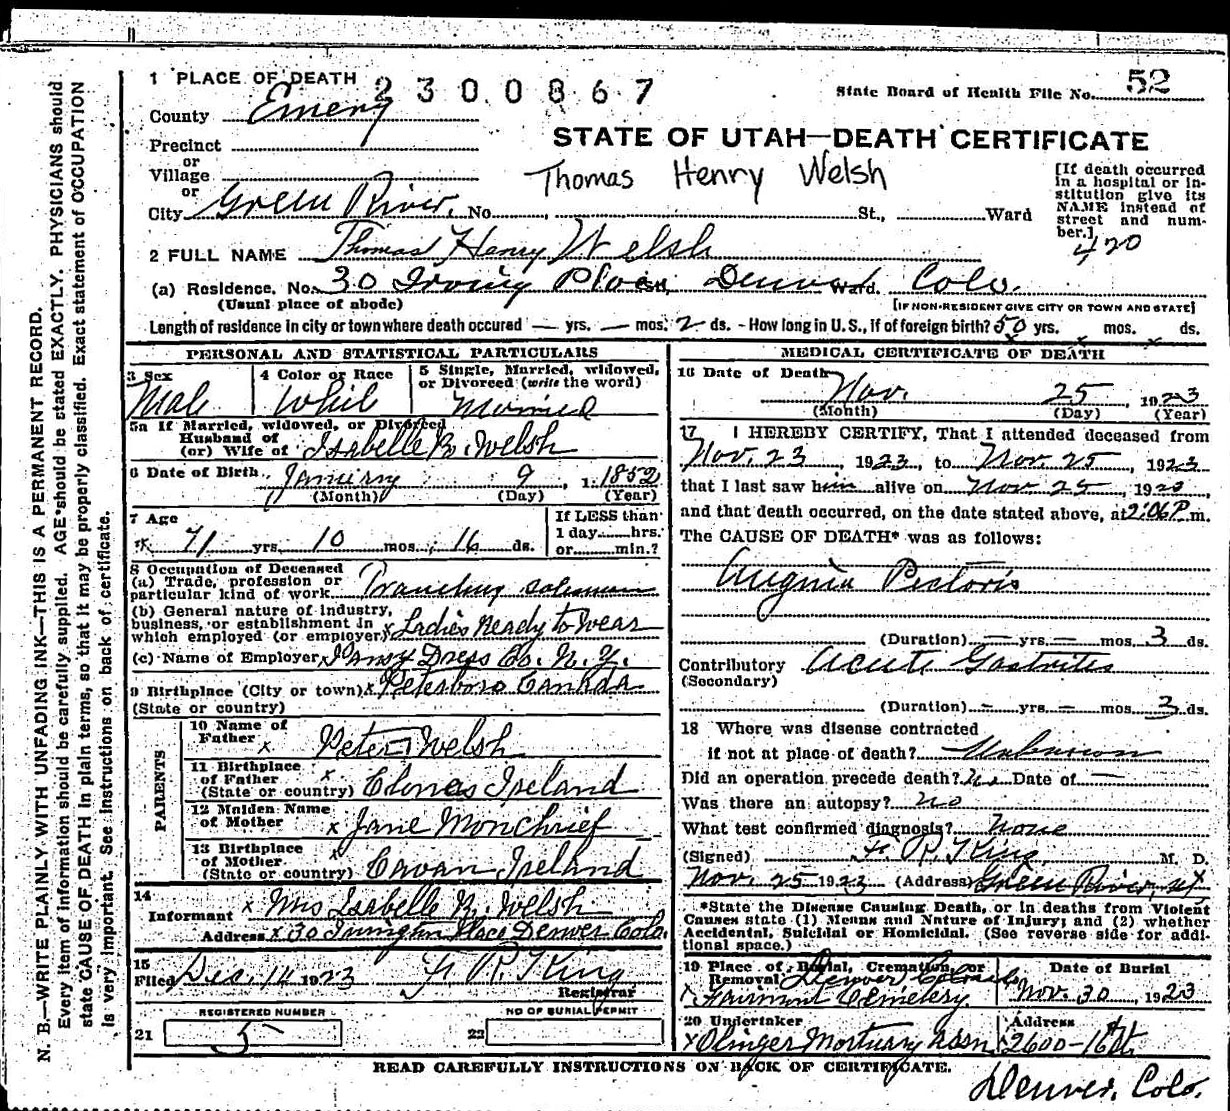 1 PLACE OF DEATH
2300867
State Board of Health File No. 52
County Emery
STATE OF UTAH—DEATH CERTIFICATE
Precinct
or
Village
or
Thomas Henry Welsh
City Green River, No. St., Ward
[If death occurred
in a hospital or in-
stitution give its
NAME instead of
street and num-
ber.]
420
2 FULL NAME Thomas Henry Welsh
(a) Residence. No. 30 Irving Place St., Denver Ward. Colo.
(Usual place of abode)
[IF NON-RESIDENT GIVE CITY OR TOWN AND STATE]
Length of residence in city or town where death occured — yrs. — mos. 2 ds. - How long in U.S., if of foreign birth? 50 yrs. mos. ds.
PERSONAL AND STATISTICAL PARTICULARS
3 Sex
Male
4 Color or Race
White
5 Single, Married, widowed,
or Divorced (write the word)
Married
5a If Married, widowed, or Divorced
Husband of
(or) Wife of Isabelle B. Welsh
6 Date of Birth January 9, 1852
(Month) (Day) (Year)
7 Age
71 yrs. 10 mos. 16 ds.
If LESS than
1 day hrs.
or min.?
8 Occupation of Deceased
(a) Trade, profession or
particular kind of work Traveling salesman
(b) General nature of industry,
business, or establishment in
which employed (or employer) x Ladies Ready to Wear
(c) Name of Employer x Dress Co. N.Y.
9 Birthplace (City or town) x Petesboro Canada
(State or country)
PARENTS
10 Name of
Father x Peter Welsh
11 Birthplace
of Father x
(State or country) Clones Ireland
12 Maiden Name
of Mother x Jane Monchrief
13 Birthplace
of Mother x
(State or country) Cavan Ireland
14
Informant x Mrs Isabelle B. Welsh
Address x 30 Place Denver Colo.
15
Filed Dec. 14 1923 F. R. King
Registrar
REGISTERED NUMBER
21 5
NO OF BURIAL PERMIT
22
MEDICAL CERTIFICATE OF DEATH
16 Date of Death Nov. 25, 1923
(Month) (Day) (Year)
17 I HEREBY CERTIFY, That I attended deceased from
Nov. 23, 1923, to Nov. 25, 1923
that I last saw him alive on Nov 25, 1923,
and that death occurred, on the date stated above, at 2:06 P.m.
The CAUSE OF DEATH* was as follows:
Angina Pectoris
(Duration) — yrs. — mos. 3 ds.
Contributory Acute Gastritis
(Secondary)
(Duration) — yrs. — mos. 3 ds.
18 Where was disease contracted
if not at place of death? Unknown
Did an operation precede death? No Date of —
Was there an autopsy? No
What test confirmed diagnosis? None
(Signed) F. R. King, M. D.
Nov. 25 1923 (Address) Green River, Ut
*State the Disease Causing Death, or in deaths from Violent
Causes state (1) Means and Nature of Injury; and (2) whether
Accidental, Suicidal or Homicidal. (See reverse side for addi-
tional space.)
19 Place of Burial, Cremation, or
Removal Denver Colorado
x Fairmont Cemetery
Date of Burial
Nov. 30, 1923
20 Undertaker
x Olinger Mortuary Assn.
Address
x 2600-16th St.
Denver, Colo.
READ CAREFULLY INSTRUCTIONS ON BACK OF CERTIFICATE.
N. B.—WRITE PLAINLY WITH UNFADING INK—THIS IS A PERMANENT RECORD.
Every item of information should be carefully supplied. AGE should be stated EXACTLY. PHYSICIANS should
state CAUSE OF DEATH in plain terms, so that it may be properly classified. Exact statement of OCCUPATION
is very important. See instructions on back of certificate.